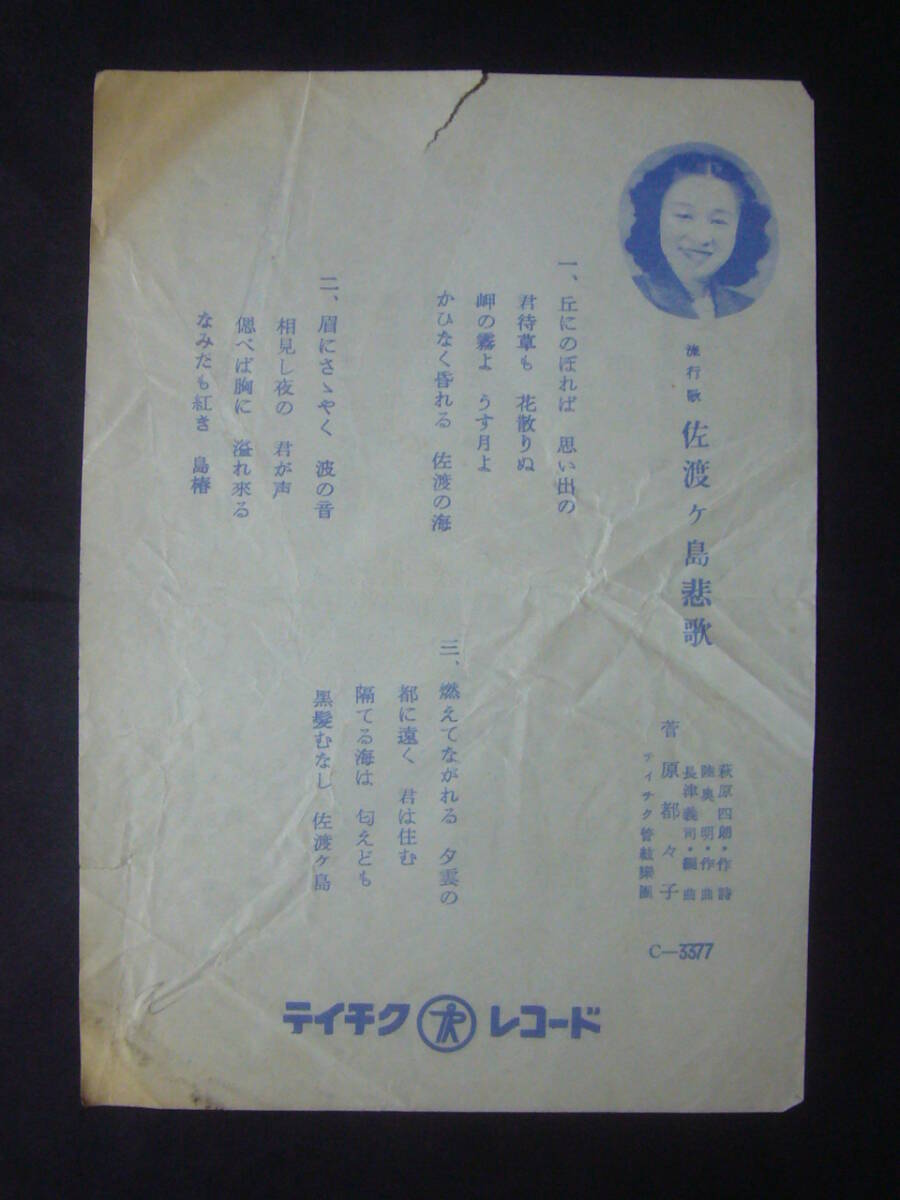 流行歌 佐渡ヶ島悲歌
萩原四朗・作詩
陸奥明・作曲
長津義司・編曲
菅原都々子
テイチク管絃楽団
C—3377
一、丘にのぼれば 思い出の
君待草も 花散りぬ
岬の霧よ うす月よ
かひなく昏れる 佐渡の海
二、眉にさゝやく 波の音
相見し夜の 君が声
偲べば胸に 溢れ來る
なみだも紅き 島椿
三、燃えてながれる 夕雲の
都に遠く 君は住む
隔てる海は 匂えども
黒髪むなし 佐渡ヶ島
テイチク レコード